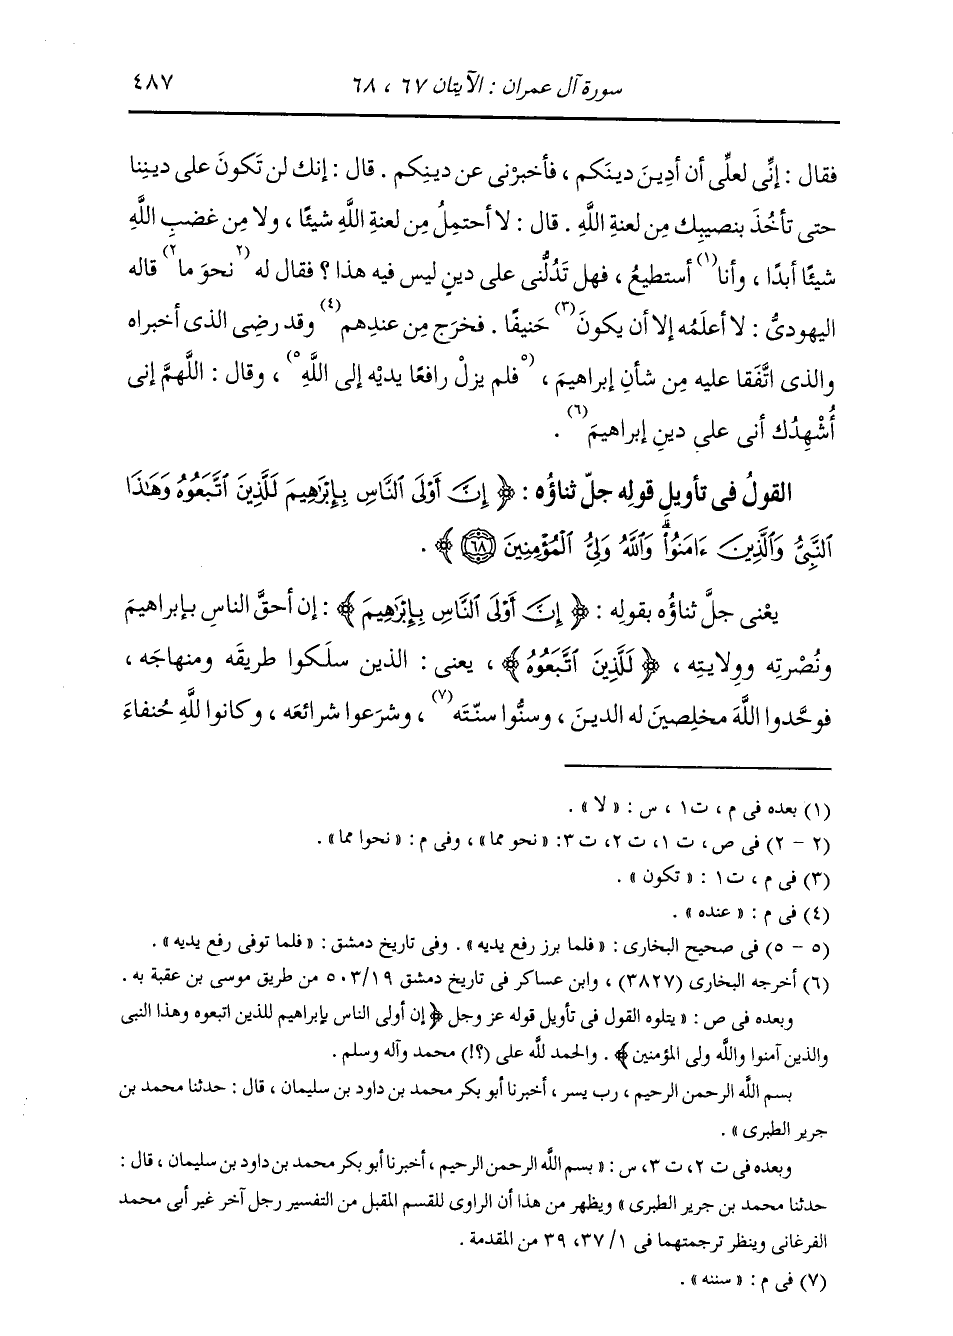 سورة آل عمران : الآيتان ٦٧ ، ٦٨
٤٨٧
فقال : إنِّى لعلِّى أن أدِينَ دينَكم ، فأخبرْنى عن دينِكم . قال : إنك لن تَكونَ على دينِنا
حتى تأخُذَ بنصيبِك مِن لعنةِ اللَّهِ . قال : لا أحتملُ مِن لعنةِ اللَّهِ شيئًا ، ولا مِن غضبِ اللَّهِ
شيئًا أبدًا ، وأنا(١) أستطيعُ ، فهل تَدُلُّنى على دينٍ ليس فيه هذا ؟ فقال له (٢نحوَ ما٢) قاله
اليهودىُّ : لا أعلَمُه إلا أن يكونَ(٣) حَنيفًا . فخرَج مِن عندِهم(٤) وقد رضِى الذى أخبراه
والذى اتَّفَقا عليه مِن شأنِ إبراهيمَ ، (٥فلم يزلْ رافعًا يديْه إلى اللَّهِ٥) ، وقال : اللَّهمَّ إنى
أُشْهِدُك أنى على دينِ إبراهيمَ(٦) .
القولُ فى تأويلِ قولِه جلّ ثناؤُه : ﴿ إِنَّ أَوْلَى ٱلنَّاسِ بِإِبْرَٰهِيمَ لَلَّذِينَ ٱتَّبَعُوهُ وَهَـٰذَا
ٱلنَّبِىُّ وَٱلَّذِينَ ءَامَنُوا۟ ۗ وَٱللَّهُ وَلِىُّ ٱلْمُؤْمِنِينَ ٦٨ ﴾ .
يعْنى جلَّ ثناؤُه بقولِه : ﴿ إِنَّ أَوْلَى ٱلنَّاسِ بِإِبْرَٰهِيمَ ﴾ : إن أحقَّ الناسِ بإبراهيمَ
ونُصْرتِه ووِلايتِه ، ﴿ لَلَّذِينَ ٱتَّبَعُوهُ ﴾ ، يعنى : الذين سلَكوا طريقَه ومنهاجَه ،
فوحَّدوا اللَّهَ مخلِصينَ له الدينَ ، وسنُّوا سنّتَه(٧) ، وشرَعوا شرائعَه ، وكانوا للَّهِ حُنفاءَ
(١) بعده فى م ، ت١ ، س : « لا » .
(٢ - ٢) فى ص، ت ١، ت ٢، ت ٣: « نحو مما» ، وفى م : « نحوا مما» .
(٣) فى م ، ت١ : « تكون » .
(٤) فى م : « عنده » .
(٥ - ٥) فى صحيح البخارى : « فلما برز رفع يديه» . وفى تاريخ دمشق : « فلما توفى رفع يديه» .
(٦) أخرجه البخارى (٣٨٢٧) ، وابن عساكر فى تاريخ دمشق ٥٠٣/١٩ من طريق موسى بن عقبة به .
وبعده فى ص : « يتلوه القول فى تأويل قوله عز وجل ﴿إن أولى الناس بإبراهيم للذين اتبعوه وهذا النبى
والذين آمنوا واللَّه ولى المؤمنين﴾ . والحمد للَّه على (؟!) محمد وآله وسلم .
بسم اللَّه الرحمن الرحيم ، رب يسر ، أخبرنا أبو بكر محمد بن داود بن سليمان ، قال : حدثنا محمد بن
جرير الطبرى » .
وبعده فى ت ٢، ت ٣، س : « بسم اللَّه الرحمن الرحيم ، أخبرنا أبو بكر محمد بن داود بن سليمان ، قال :
حدثنا محمد بن جرير الطبرى » ويظهر من هذا أن الراوى للقسم المقبل من التفسير رجل آخر غير أبى محمد
الفرغانى وينظر ترجمتهما فى ١/ ٣٧، ٣٩ من المقدمة .
(٧) فى م : « سننه » .